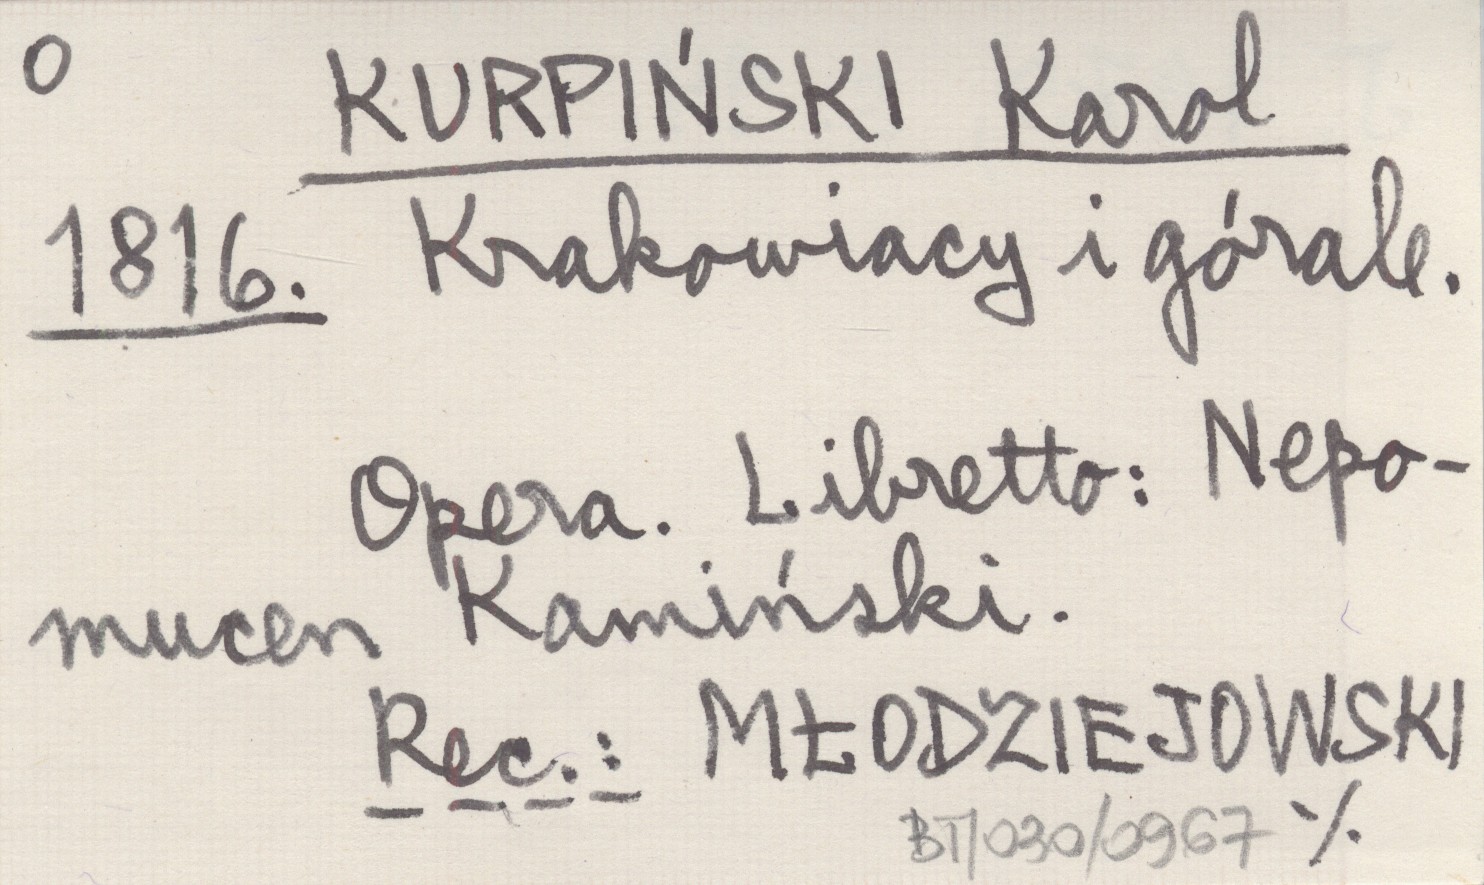 O
KURPIŃSKI Karol
1816. Krakowiacy i górale.
Opera. Libretto: Nepo-
mucen Kamiński.
Rec.: MŁODZIEJOWSKI
BT/030/0967 ·/.